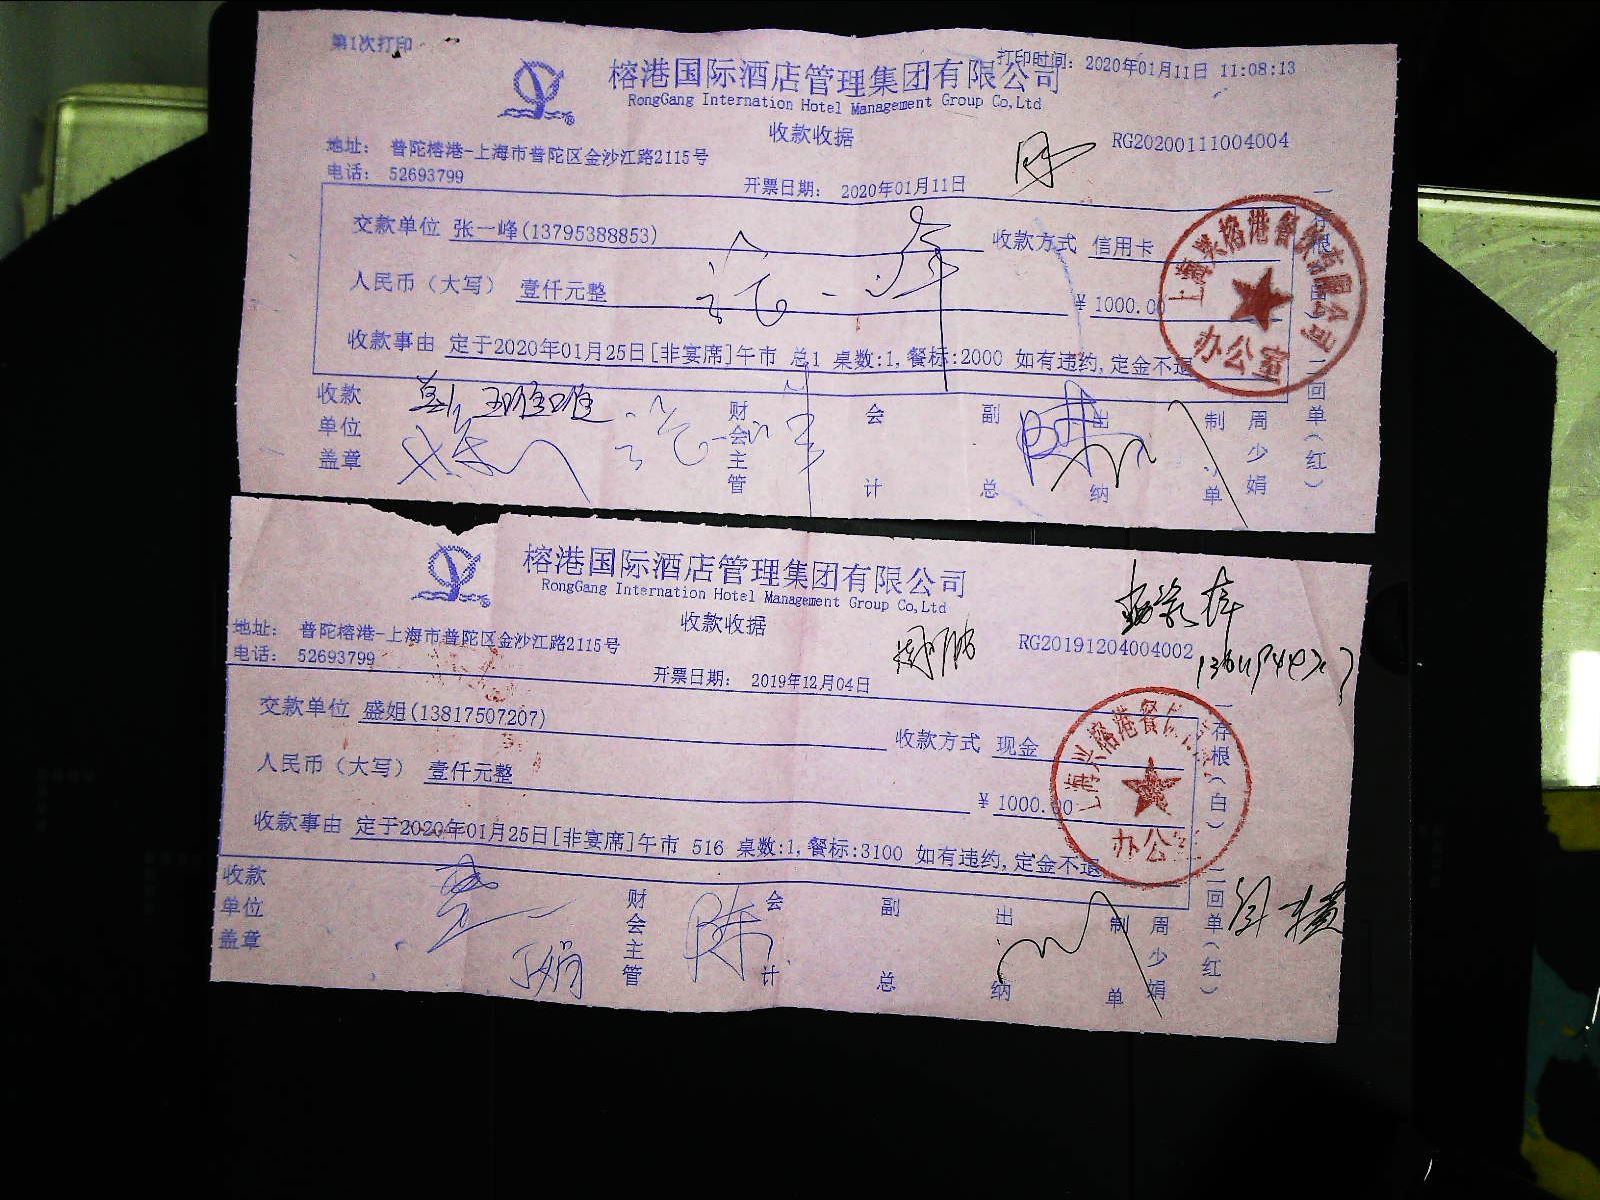 第1次打印
打印时间: 2020年01月11日 11:08:13
榕港国际酒店管理集团有限公司
RongGang Internation Hotel Management Group Co,Ltd
收款收据
RG20200111004004
地址: 普陀榕港-上海市普陀区金沙江路2115号
电话: 52693799
开票日期: 2020年01月11日
交款单位 张一峰(13795388853)
收款方式 信用卡
人民币（大写） 壹仟元整
¥ 1000.00
收款事由 定于2020年01月25日[非宴席]午市 总1 桌数:1,餐标:2000 如有违约,定金不退
收款单位盖章 财会主管 会计 副总 出纳 制单 周少娟
二回单(红)
办公室
榕港国际酒店管理集团有限公司
RongGang Internation Hotel Management Group Co,Ltd
收款收据
RG20191204004002
地址: 普陀榕港-上海市普陀区金沙江路2115号
电话: 52693799
开票日期: 2019年12月04日
交款单位 盛姐(13817507207)
收款方式 现金
人民币（大写） 壹仟元整
¥ 1000.00
收款事由 定于2020年01月25日[非宴席]午市 516 桌数:1,餐标:3100 如有违约,定金不退
收款单位盖章 财会主管 会计 副总 出纳 制单 周少娟
一存根(白) 二回单(红)
办公室